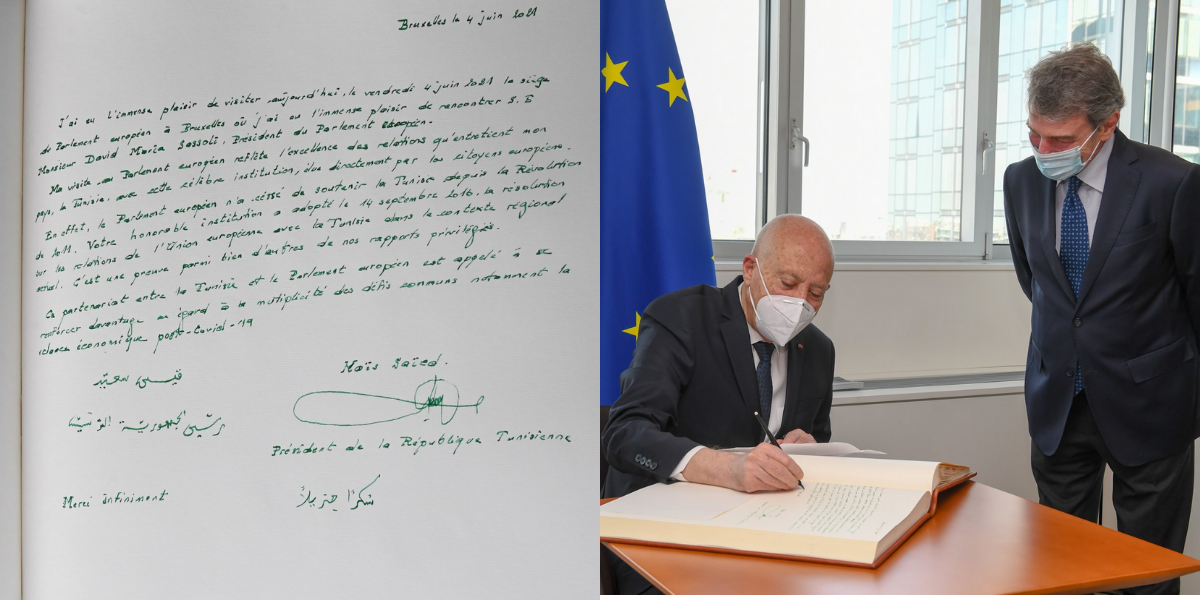 Bruxelles le 4 juin 2021
J'ai eu l'immense plaisir de visiter, aujourd'hui, le vendredi 4 juin 2021 le siège
du Parlement européen à Bruxelles où j'ai eu l'immense plaisir de rencontrer S. E
Monsieur David Maria Sassoli, Président du Parlement européen.
Ma visite au Parlement européen reflète l'excellence des relations qu'entretient mon
pays, la Tunisie, avec cette célèbre institution, élue directement par les citoyens européens.
En effet, le Parlement européen n'a cessé de soutenir la Tunisie depuis la Révolution
de 2011. Votre honorable institution a adopté le 14 septembre 2016, la résolution
sur les relations de l'Union européenne avec la Tunisie dans le contexte régional
actuel. C'est une preuve parmi bien d'autres de nos rapports privilégiés.
Ce partenariat entre la Tunisie et le Parlement européen est appelé à se
renforcer davantage au égard à la multiplicité des défis communs notamment la
relance économique post-Covid-19
Kaïs Saïed.
قيس سعيد
رئيس الجمهورية التونسية
Président de la République Tunisienne
Merci infiniment
شكرا جزيلاً